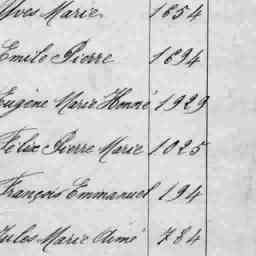 Yves Marie 1654
Emile Pierre 1894
Eugène Marie Honné 1929
Félix Pierre Marie 1025
François Emmanuel 194
Jules Marie Aimé 784